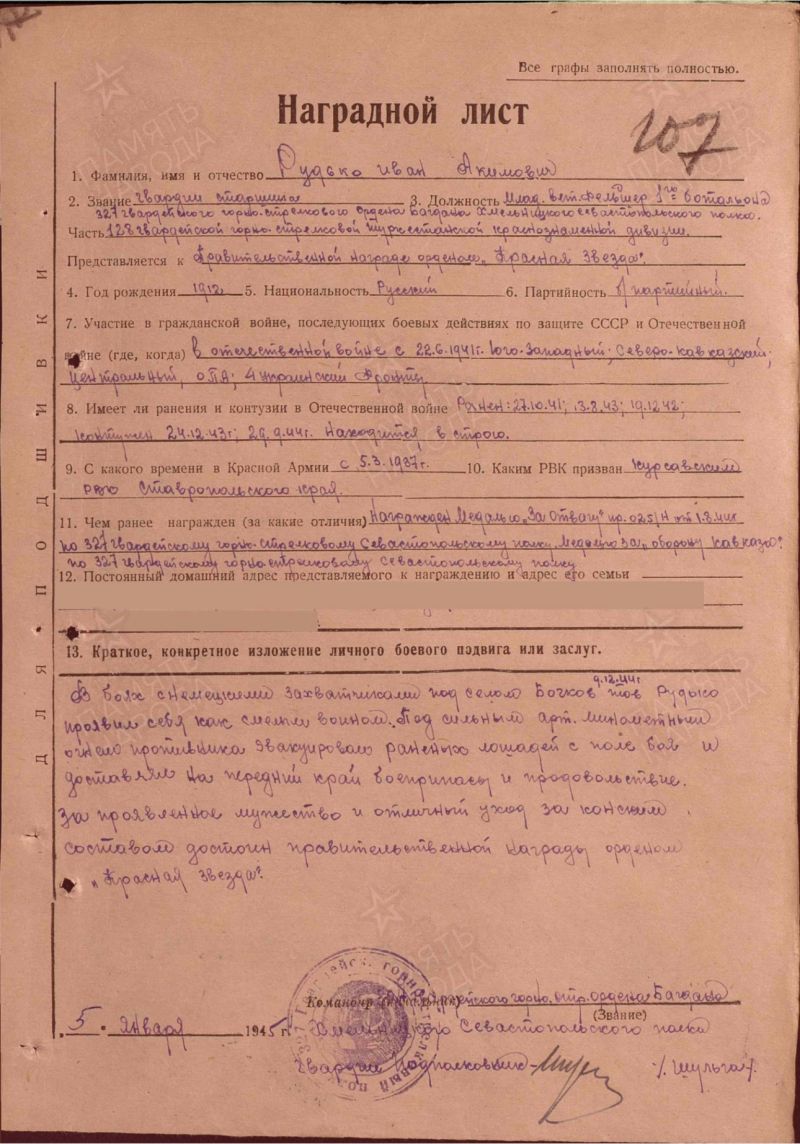 Все графы заполнять полностью.
Наградной лист
107
1. Фамилия, имя и отчество Рудько Иван Акимович
2. Звание Гвардии старшина 3. Должность Млад. вет. фельдшер 1го батальона
327 гвардейского горно-стрелкового ордена Богдана Хмельницкого Севастопольского полка.
Часть 128 гвардейской горно-стрелковой Туркестанской краснознаменной дивизии.
Представляется к Правительственной награде орденом „Красная Звезда".
4. Год рождения 1912 5. Национальность Русский 6. Партийность б/партийный.
7. Участие в гражданской войне, последующих боевых действиях по защите СССР и Отечественной
войне (где, когда) В отечественной войне с 22.6.1941г. Юго-Западный; Северо-Кавказский;
Центральный, ОПА; 4 Украинский фронты.
8. Имеет ли ранения и контузии в Отечественной войне Ранен: 27.10.41; 13.8.43; 19.12.42;
контужен 24.12.43г; 29.9.44г. Находится в строю.
9. С какого времени в Красной Армии с 5.3.1937г. 10. Каким РВК призван Курсавским
РВК Ставропольского края.
11. Чем ранее награжден (за какие отличия) Награжден Медалью „За Отвагу" пр. 025/Н от 1.8.44г
по 327 гвардейскому горно-стрелковому Севастопольскому полку Медалью За „оборону Кавказа"
по 327 гвардейскому горно-стрелковому Севастопольскому полку
12. Постоянный домашний адрес представляемого к награждению и адрес его семьи
13. Краткое, конкретное изложение личного боевого подвига или заслуг.
9.12.44г
В боях с немецкими захватчиками под селом Бочков тов Рудько
проявил себя как смелым воином. Под сильным арт. минометным
огнем противника эвакуировал раненых лошадей с поле боя и
доставлял на передний край боеприпасы и продовольствие.
За проявленное мужество и отличный уход за конским
составом достоин правительственной награды орденом
„Красная Звезда".
Командир (начальник) гвардейского горно. стр. ордена Багдана
(Звание)
5. Января 1945 г. Хмельницкого Севастопольского полка
Гвардии Подполковник /Шульга/
ДЛЯ ПОДШИВКИ
ПАМЯТЬ НАРОДА